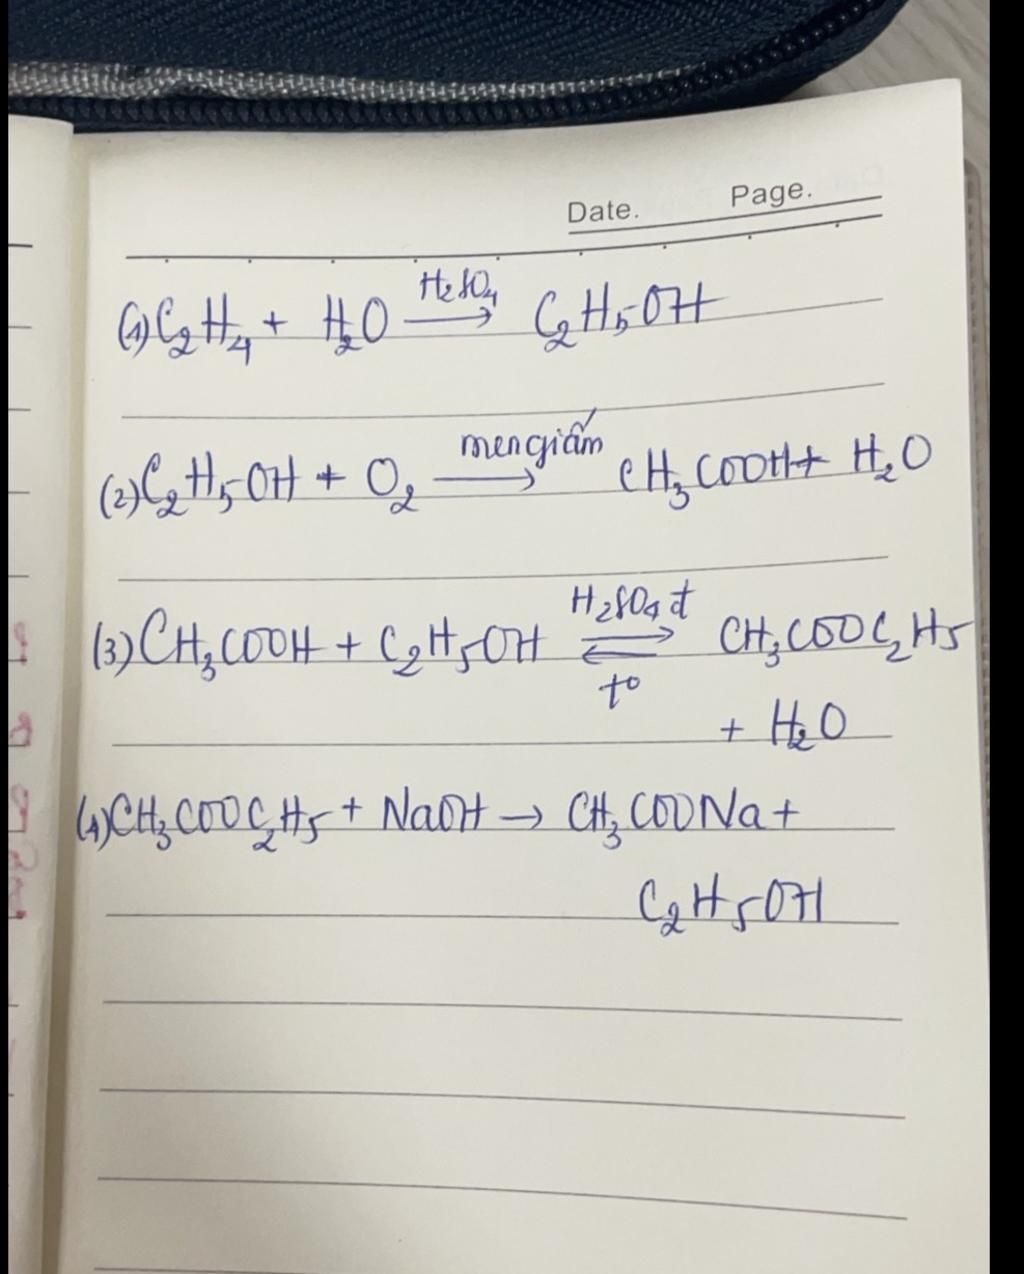 Date. Page.
(1) C₂H₄ + H₂O H₂SO₄ → C₂H₅OH
(2) C₂H₅OH + O₂ men giấm → CH₃COOH + H₂O
(3) CH₃COOH + C₂H₅OH H₂SO₄ đ ⇌ t° CH₃COOC₂H₅
+ H₂O
(4) CH₃COOC₂H₅ + NaOH → CH₃COONa +
C₂H₅OH